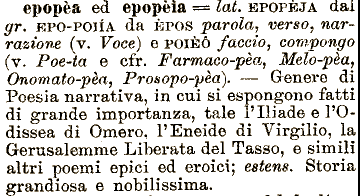 epopèa ed epopèia = lat. EPOPÈJA dal
gr. EPO-POIÍA da ÉPOS parola, verso, nar-
razione (v. Voce) e POIÈÔ faccio, compongo
(v. Poe-ta e cfr. Farmaco-pèa, Melo-pèa,
Onomato-pèa, Prosopo-pèa). — Genere di
Poesia narrativa, in cui si espongono fatti
di grande importanza, tale l'Iliade e l'O-
dissea di Omero, l'Eneide di Virgilio, la
Gerusalemme Liberata del Tasso, e simili
altri poemi epici ed eroici; estens. Storia
grandiosa e nobilissima.